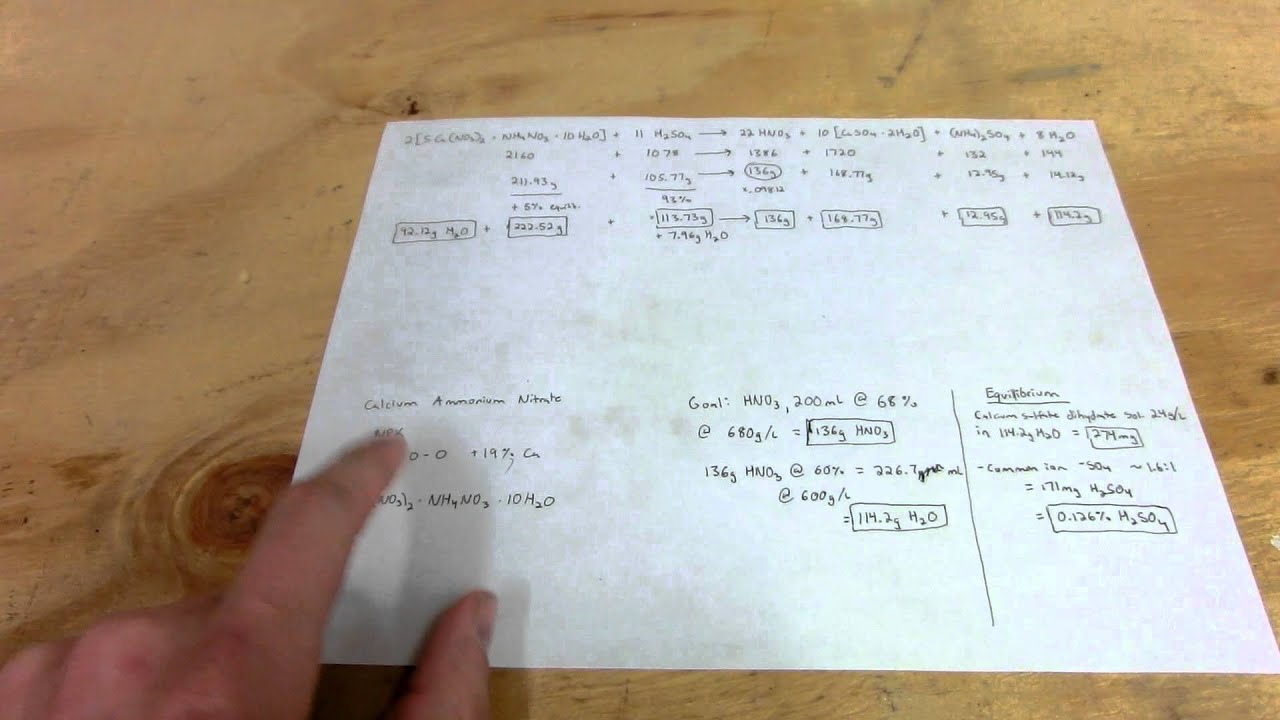 2[5Ca(NO3)2 · NH4NO3 · 10H2O] + 11 H2SO4 → 22 HNO3 + 10[CaSO4 · 2H2O] + (NH4)2SO4 + 8 H2O
2160 + 1078 → 1386 + 1720 + 132 + 144
211.93g + 105.77g → 136g + 168.77g + 12.95g + 14.12g
+ 5% equilib. 93% x.09812
92.12g H2O + 222.52g + 113.73g → 136g + 168.77g + 12.95g + 114.2g
+ 7.96g H2O
Calcium Ammonium Nitrate
NPK
0-0 +19% Ca
NO3)2 · NH4NO3 · 10H2O
Goal: HNO3, 200mL @ 68%
@ 680g/L = 136g HNO3
136g HNO3 @ 60% = 226.7 mL
@ 600g/L
= 114.2g H2O
Equilibrium
Calcium sulfate dihydrate sol 2.4g/L
in 114.2g H2O = 274mg
- Common ion -SO4 ~1.6:1
= 171mg H2SO4
= 0.126% H2SO4